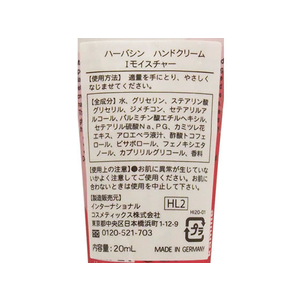 ハーバシン　ハンドクリーム
Iモイスチャー
【使用方法】 適量を手にとり、やさしく
なじませてください。
【全成分】水、グリセリン、ステアリン酸
グリセリル、ジメチコン、セテアリルアル
コール、パルミチン酸エチルヘキシル、
セテアリル硫酸Na、PG、カミツレ花
エキス、アロエベラ液汁、酢酸トコフェ
ロール、ビサボロール、フェノキシエタ
ノール、カプリリルグリコール、香料
【使用上の注意】●お肌に異常が生じていな
いかよく注意して使用してください。お肌に
合わないときは使用をおやめください。
【製造販売元】
インターナショナル
コスメティックス株式会社
東京都中央区日本橋浜町1-12-9
0120-521-703
内容量:20mL
HL2
HI20-01
MADE IN GERMANY